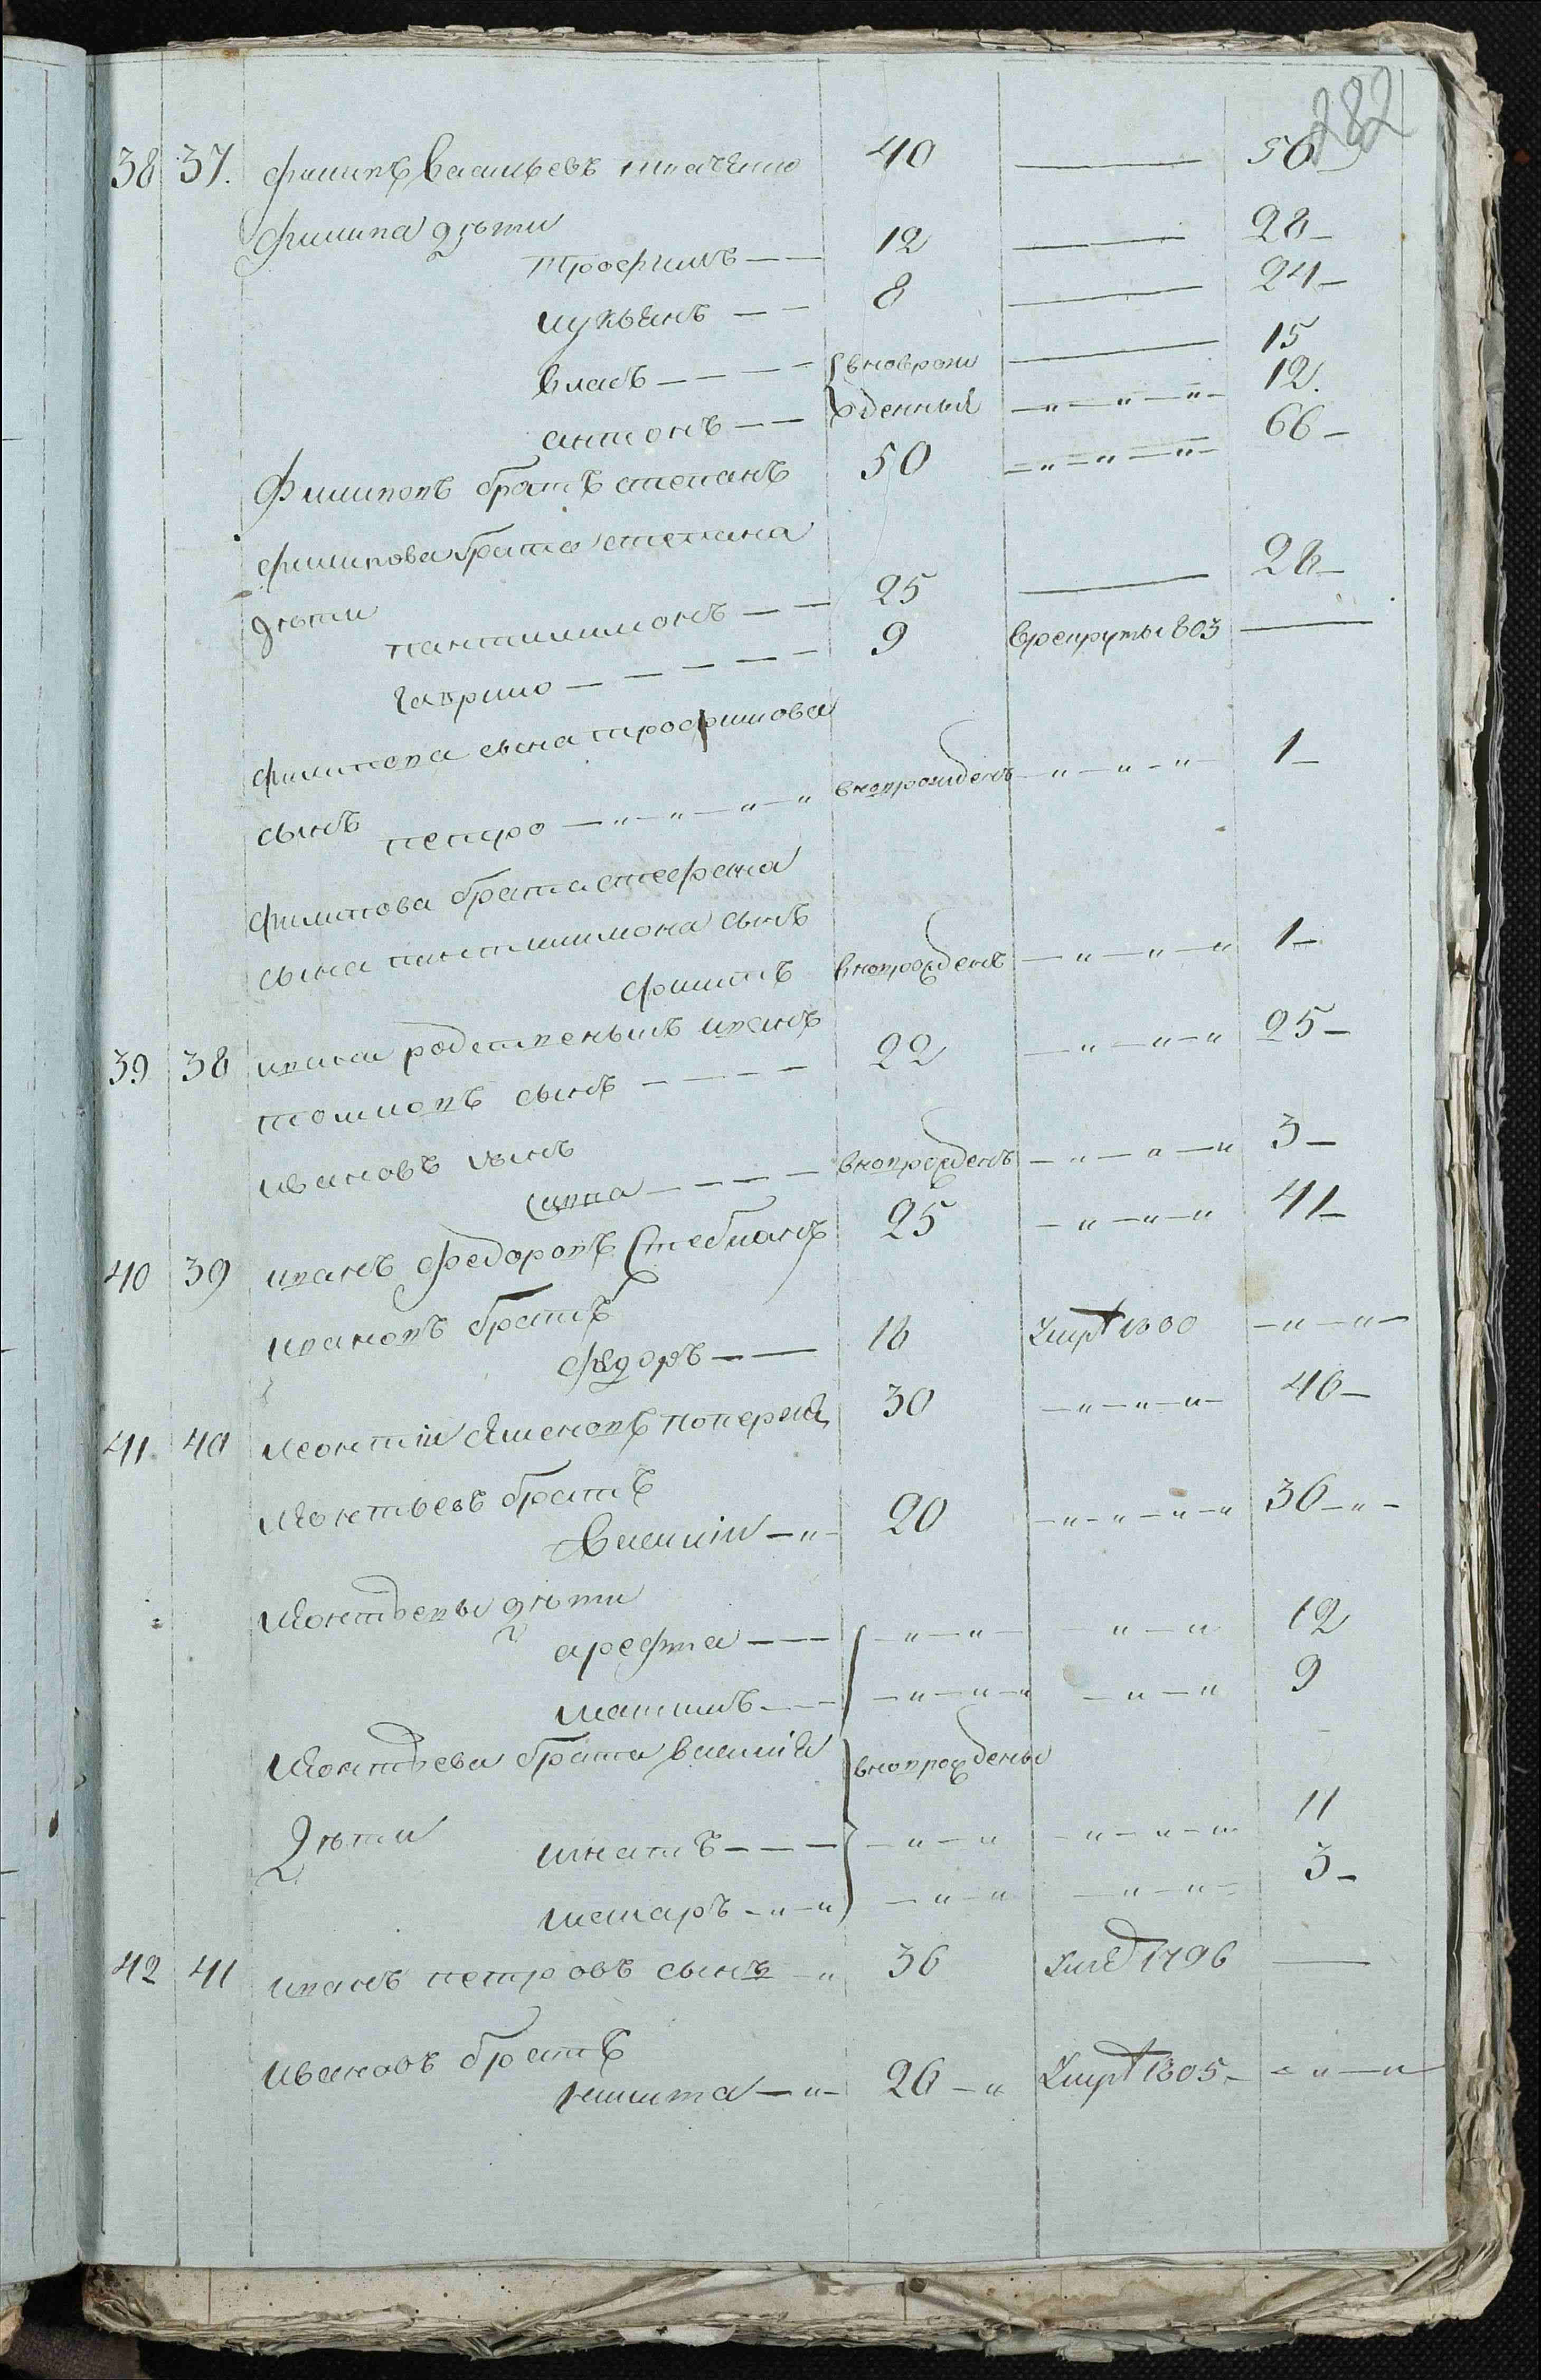 282
38 37. Филипъ Васильевъ 40 — 56
Филипа дѣти
Трофимъ — — 12 — 28 —
Лукьянъ — — 8 — 24 —
Власъ — — — — вноврож — 15
антонъ — — жденныя — „ — „ — „ — 12.
Филиповъ братъ степанъ 50 — „ — „ — „ — 66 —
филипова брата степана
дѣти
пантилимонъ — — 25 — 28 —
гаврило — — — — — 9 Врекруты 803 —
филипова сына трофимова
сынъ
петро — „ — „ — „ — „ вновражденъ — „ — „ — „ 1 —
филипова брата стефана
сына пантилимона сынъ
филипъ вноврожденъ — „ — „ — „ 1 —
39 38 ивана родственыикъ иванъ 22 — „ — „ — „ 25 —
сынъ — — — —
ивановъ сынъ
савва — — — — вноврожденъ — „ — „ — „ 3 —
40 39 иванъ федоровъ Стеблянъ 25 — „ — „ — „ 41 —
ивановъ братъ
федоръ — — 18 Умръ 1800 — „ — „ —
41. 40 леонтiй Яшеновъ 30 — „ — „ — „ — 46 —
леонтьевъ братъ
Василiи — „ — 20 — „ — „ — „ — „ 36 — „ —
леонтьевы дѣти
арефта — — — „ — „ — — „ — „ 12
максимъ — — — „ — „ — „ — „ — „ 9
леонтьева брата василiя вноврождены
Дѣти
игнатъ — — — — „ — „ — „ — „ — „ 11
макаръ — „ — „ — „ — „ — „ — „ — 3 —
42 41 иванъ петровъ сынъ — „ 36 1796 —
ивановъ братъ
никита — „ — 26 — „ Умръ 1805 — — „ — „